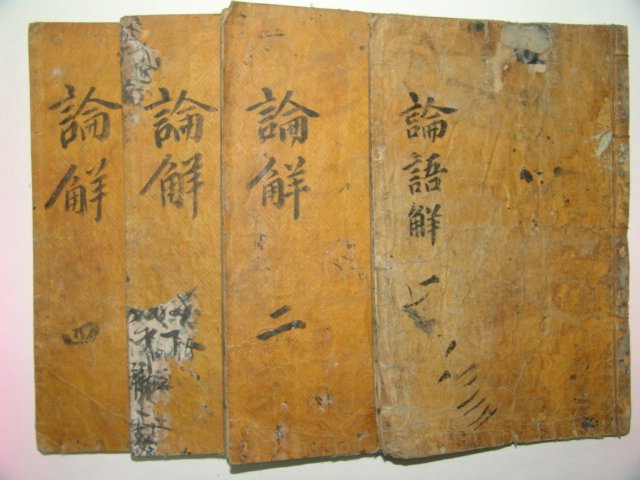 論語解
一
論解
二
論解
論解
四